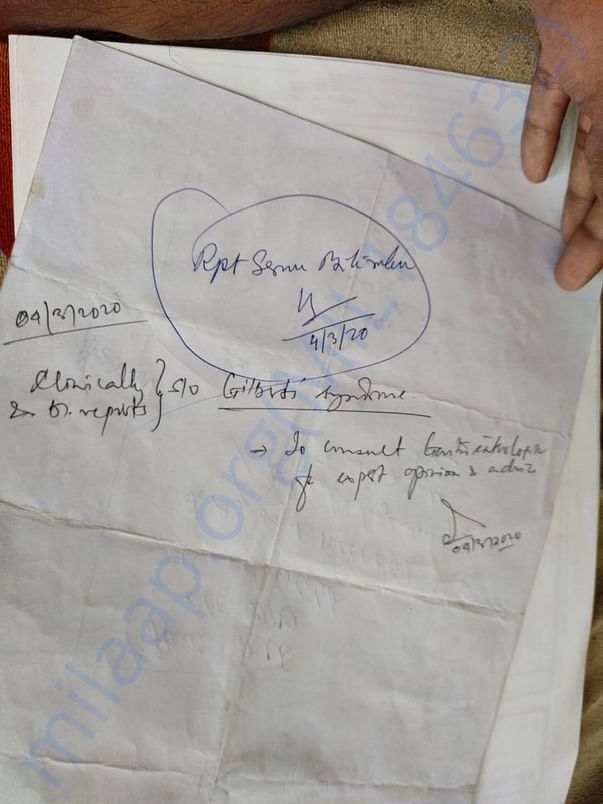 Rpt Serum Bilirubin
4/3/20
04/3/2020
Clinically } s/o Gilbert's syndrome.
& Br. reports
→ To consult Gastroenterologist
for expert opinion &
04/3/2020
milaap.org(MIL184632)